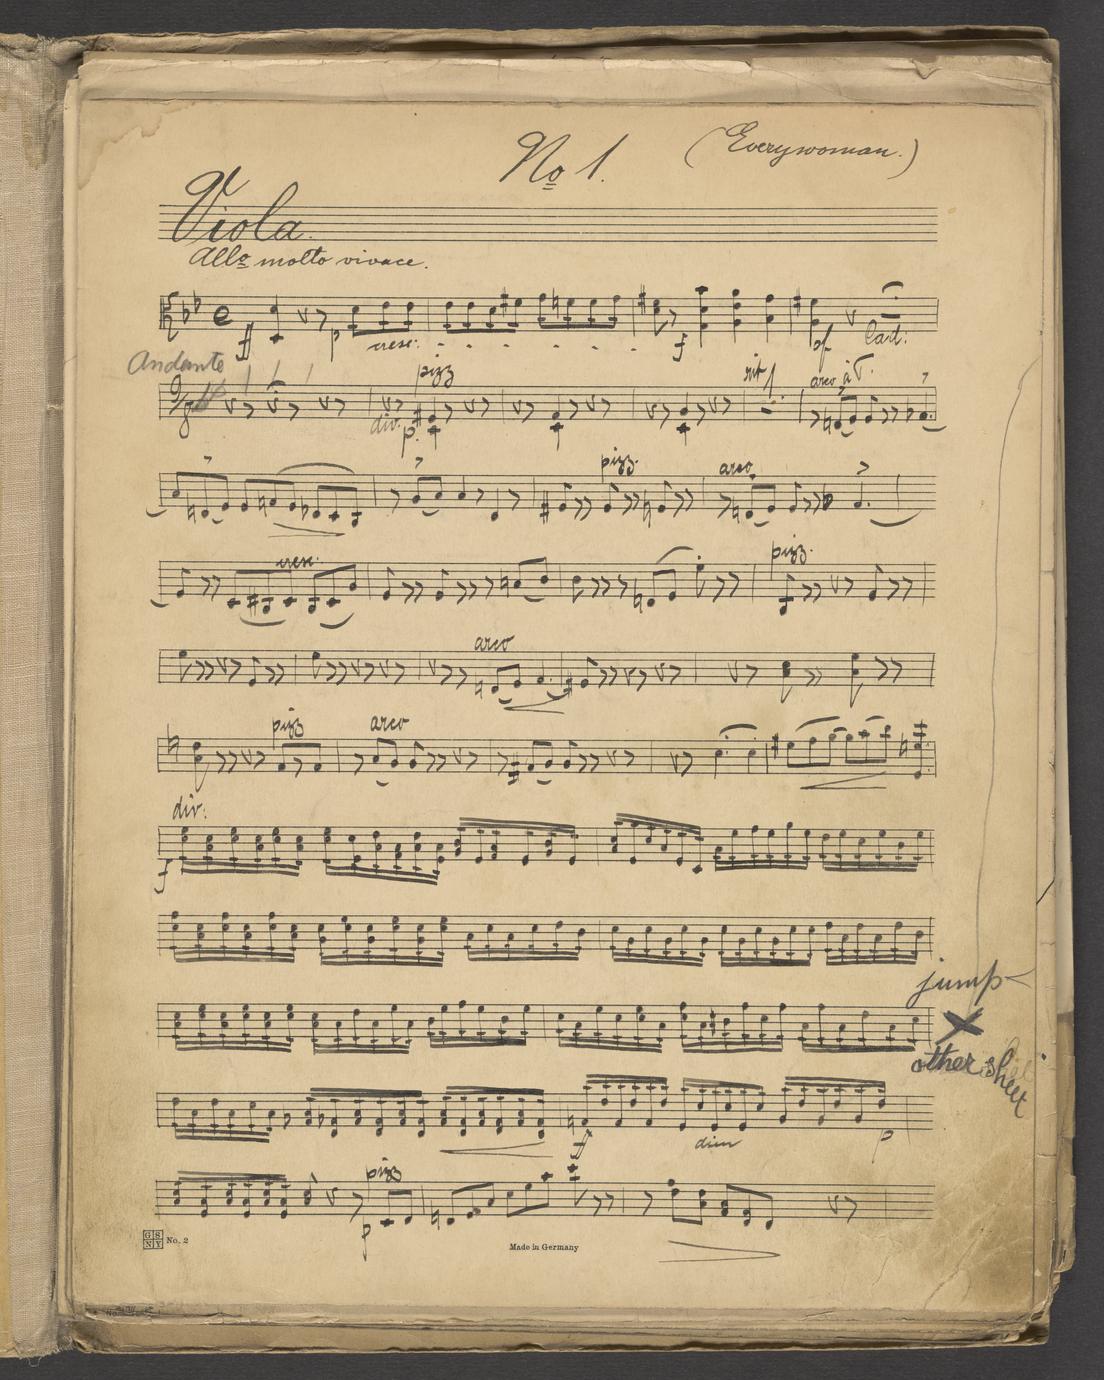 No 1.
(Everywoman.)
Viola.
Allo molto vivace.
ff p cresc: f sf Cad:
Andante
pizz rit arco
9/8 div. p.
pizz. arco
cresc. pizz.
arco
pizz arco
div:
f
jump
X
other sheet
f dim p
pizz
p
G S N Y No. 2
Made in Germany